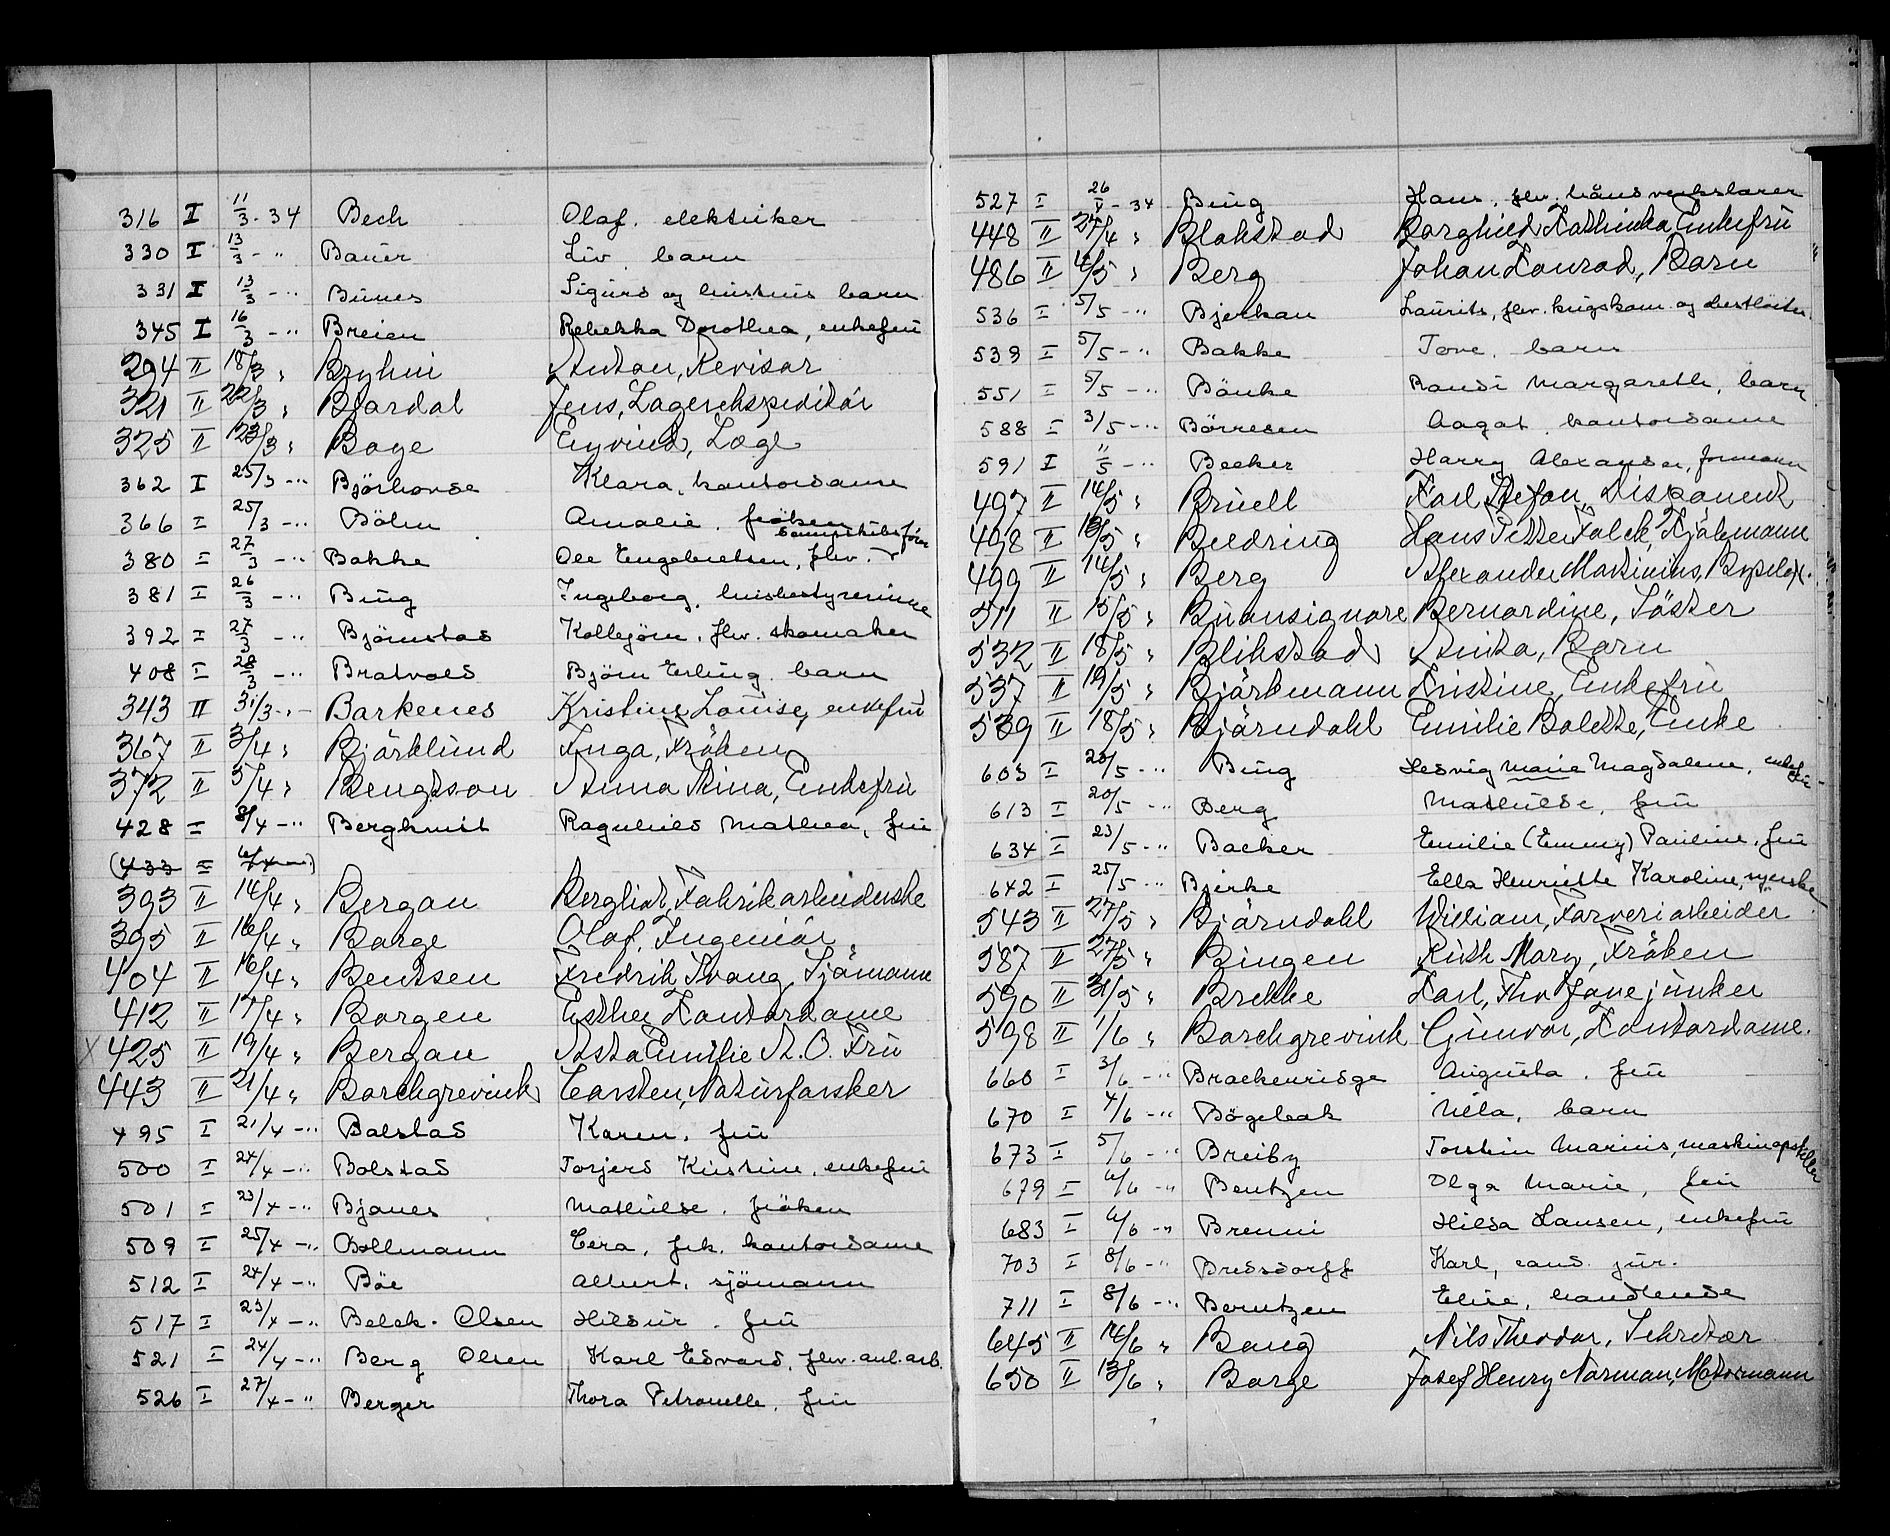 316 I 11/3 - 34 Bech Olaf, elektriker
330 I 13/3 - " Bauer Liv, barn
331 I 13/3 - " Bunes Sigurd og hustrus barn
345 I 16/3 - " Breien Rebekka Dorothea, enkefru
294 II 18/3 " Bryhni Anton, Revisor
321 II 22/3 " Bjørdal Jens, Lagerekspeditör
325 II 23/3 " Boye Eyvind, Læge
362 I 25/3 - " Björhovde Klara, kontordame
366 I 25/3 - " Böhn Amalie, fröken
380 I 27/3 - " Bakke Ole Engebretsen, fhv.
381 I 26/3 - " Bing Ingeborg, husbestyrerinne
392 I 27/3 - " Björnstad Kolbjörn, fhv. skomaker
408 I 28/3 - " Bratvold Björn Erling, barn
343 II 31/3 - " Barkenes Kristine Louise, enkefru
367 II 3/4 " Björklund Inga, Fröken
372 II 5/4 " Bengtson Anna Stina, Enkefru
428 I 8/4 - " Bergkvist Ragnhild Mathea, fru
(433 I 6/4 - ")
393 II 14/4 " Bergan Bergliot, Fabrikarbeiderske
395 II 16/4 " Borge Olaf, Ingeniör
404 II 16/4 " Bentsen Fredrik Svang, Sjömann
412 II 17/4 " Borgen Esther, Kontordame
X 425 II 19/4 " Bergan Asta Emilie A. O. Fru
443 II 21/4 " Borchgrevink Carsten, Naturforsker
495 I 21/4 - " Bolstad Karen, fru
500 I 24/4 - " Bolstad Torjerd Kristine, enkefru
501 I 23/4 - " Bjanes Mathilde, fröken
509 I 25/4 - " Bollmann Cera, frk. kontordame
512 I 24/4 - " Böe Albert, sjömann
517 I 23/4 - " Belck-Olsen Hildur, fru
521 I 24/4 - " Berg Olsen Karl Edvard, fhv. anl.arb.
526 I 27/4 - " Berger Thora Petronelle, fru
527 I 26/4 - 34 Bing Hans, fhv. håndverkslærer
448 II 27/4 " Blakstad Borghild Kathinka, Enkefru
486 II 4/5 " Berg Johan Konrad, Barn
536 I 5/5 - " Bjerkan Laurits, fhv. krigskom. og oberstlöitn.
539 I 5/5 - " Bakke Tove, barn
551 I 5/5 - " Bönke Randi Margareth, barn
588 I 3/5 - " Börresen Aagot, kontordame
591 I 11/5 - " Becker Harry Alexander, formann
497 II 14/5 " Bruell Karl Stefan, Disponent
498 II 13/5 " Buedring Hans Petter Falck, Kjölemann
499 II 14/5 " Berg Alexander Martinius,
511 II 15/5 " Buonsignore Bernardine, Söster
532 II 18/5 " Blikstad Anita, Barn
537 II 19/5 " Björkmann Kristine, Enkefru
539 II 18/5 " Björndahl Emilie Bolette, Enke
603 I 20/5 - " Bing Hedvig Marie Magdalene, enkefru
613 I 20/5 - " Berg Mathilde, fru
634 I 23/5 - " Backer Emilie (Emmy) Pauline, fru
642 I 25/5 - " Bjerke Ella Henriette Karoline, syerske
543 II 27/5 " Björndahl William, Farveriarbeider
587 II 27/5 " Bingen Ruth Mary, Fröken
590 II 31/5 " Brekke Karl, Thv Jovejunker
598 II 1/6 " Borchgrevink Gunvor, Kontordame.
660 I 3/6 - " Brackenridge Augusta, fru
670 I 4/6 - " Bögebak Nela, barn
673 I 5/6 - " Breiby Torstein Marius, maskinopstiller
679 I 6/6 - " Bentzen Olga Marie, fru
683 I 6/6 - " Brenni Hilda Hansen, enkefru
703 I 8/6 - " Bredsdorff Karl, cand. jur.
711 I 8/6 - " Berntzen Elise, handlende
645 II 14/6 " Bang Nils Theodor, Sekretær
650 II 13/6 " Borge Josef Henry Norman, Motormann